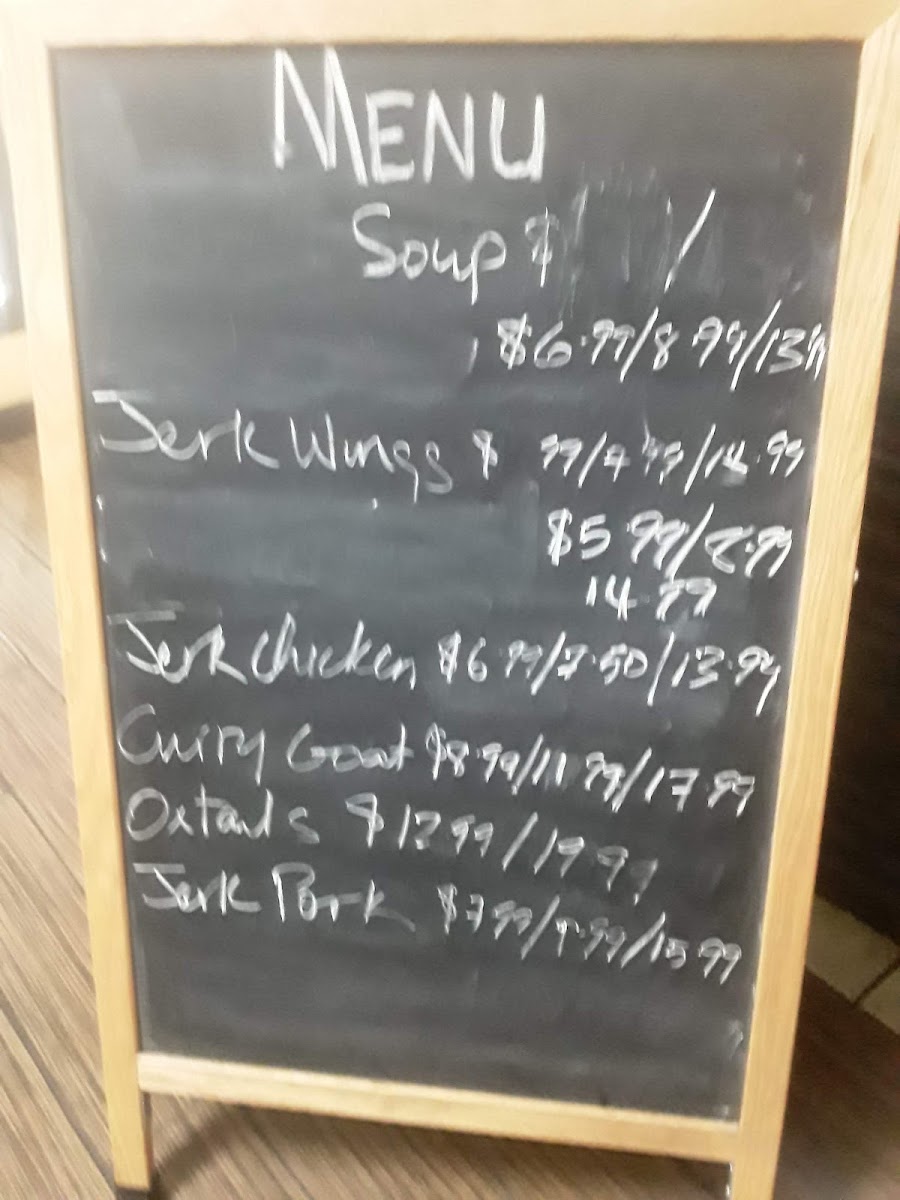 MENU
Soup $ /
$6.99/8.99/13
Jerk Wings $ 99/7.99/14.99
$5.99/ 
14.99
Jerk chicken $6.99/7.50/13.99
Curry Goat $8.99/11.99/17.99
Oxtails $12.99/19.99
Jerk Pork $7.99/9.99/15.99